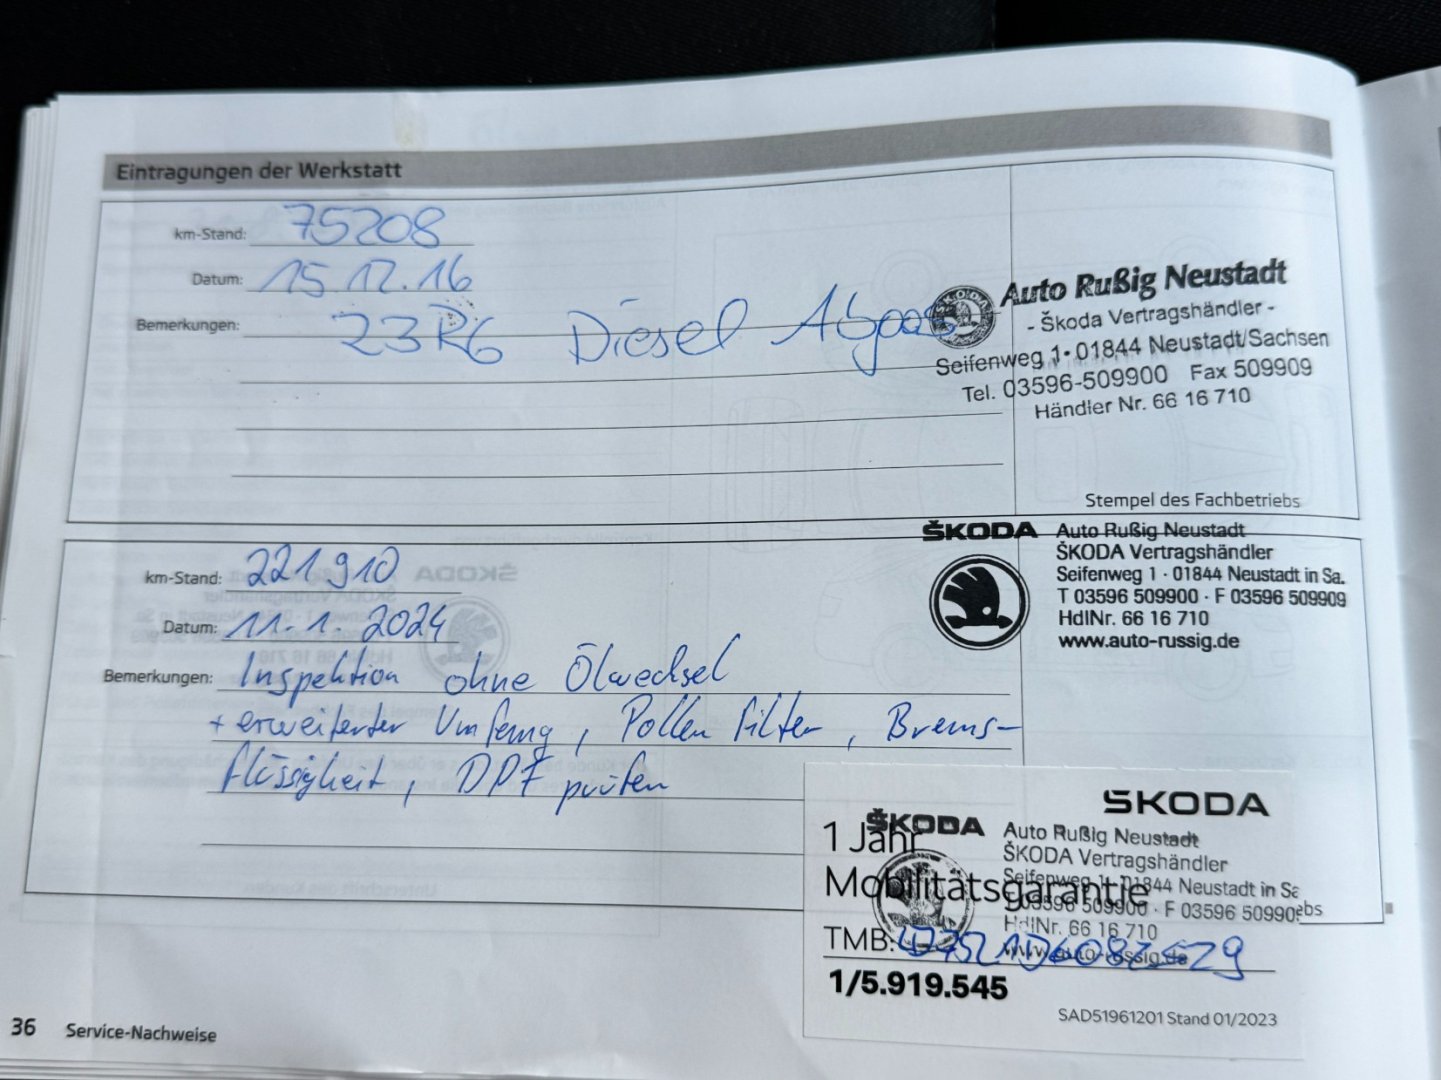 Eintragungen der Werkstatt
km-Stand: 75208
Datum: 15.12.16
Bemerkungen: 23R6 Diesel Abgas
ŠKODA
Auto Rußig Neustadt
- Škoda Vertragshändler -
Seifenweg 1 • 01844 Neustadt/Sachsen
Tel. 03596-509900 Fax 509909
Händler Nr. 66 16 710
Stempel des Fachbetriebs
km-Stand: 221910
Datum: 11.1.2024
Bemerkungen: Inspektion ohne Ölwechsel
+ erweiterter Umfang, Pollenfilter, Brems-
flüssigkeit, DPF prüfen
ŠKODA Auto Rußig Neustadt
ŠKODA Vertragshändler
Seifenweg 1 · 01844 Neustadt in Sa.
T 03596 509900 · F 03596 509909
HdlNr. 66 16 710
www.auto-russig.de
ŠKODA
1 Jahr
Mobilitätsgarantie
TMB:
1/5.919.545
SAD51961201 Stand 01/2023
ŠKODA Auto Rußig Neustadt
ŠKODA Vertragshändler
Seifenweg 1 · 01844 Neustadt in Sa
T 03596 509900 · F 03596 50990
HdlNr. 66 16 710
www.auto-russig.de
ebs
36 Service-Nachweise